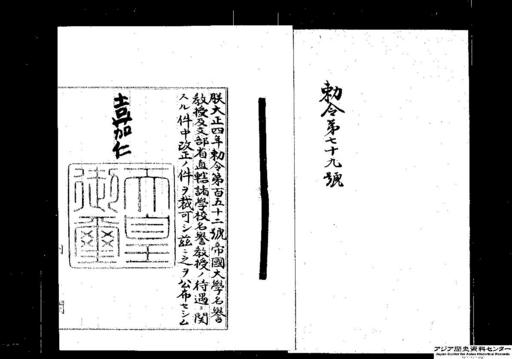 勅令第七十九號
朕大正四年勅令第百五十二號帝國大學名譽
教授及文部省直轄諸學校名譽教授ノ待遇ニ関
スル件中改正ノ件ヲ裁可シ茲ニ之ヲ公布セシム
嘉仁
天皇
御璽
アジア歴史資料センター
Japan Center for Asian Historical Records